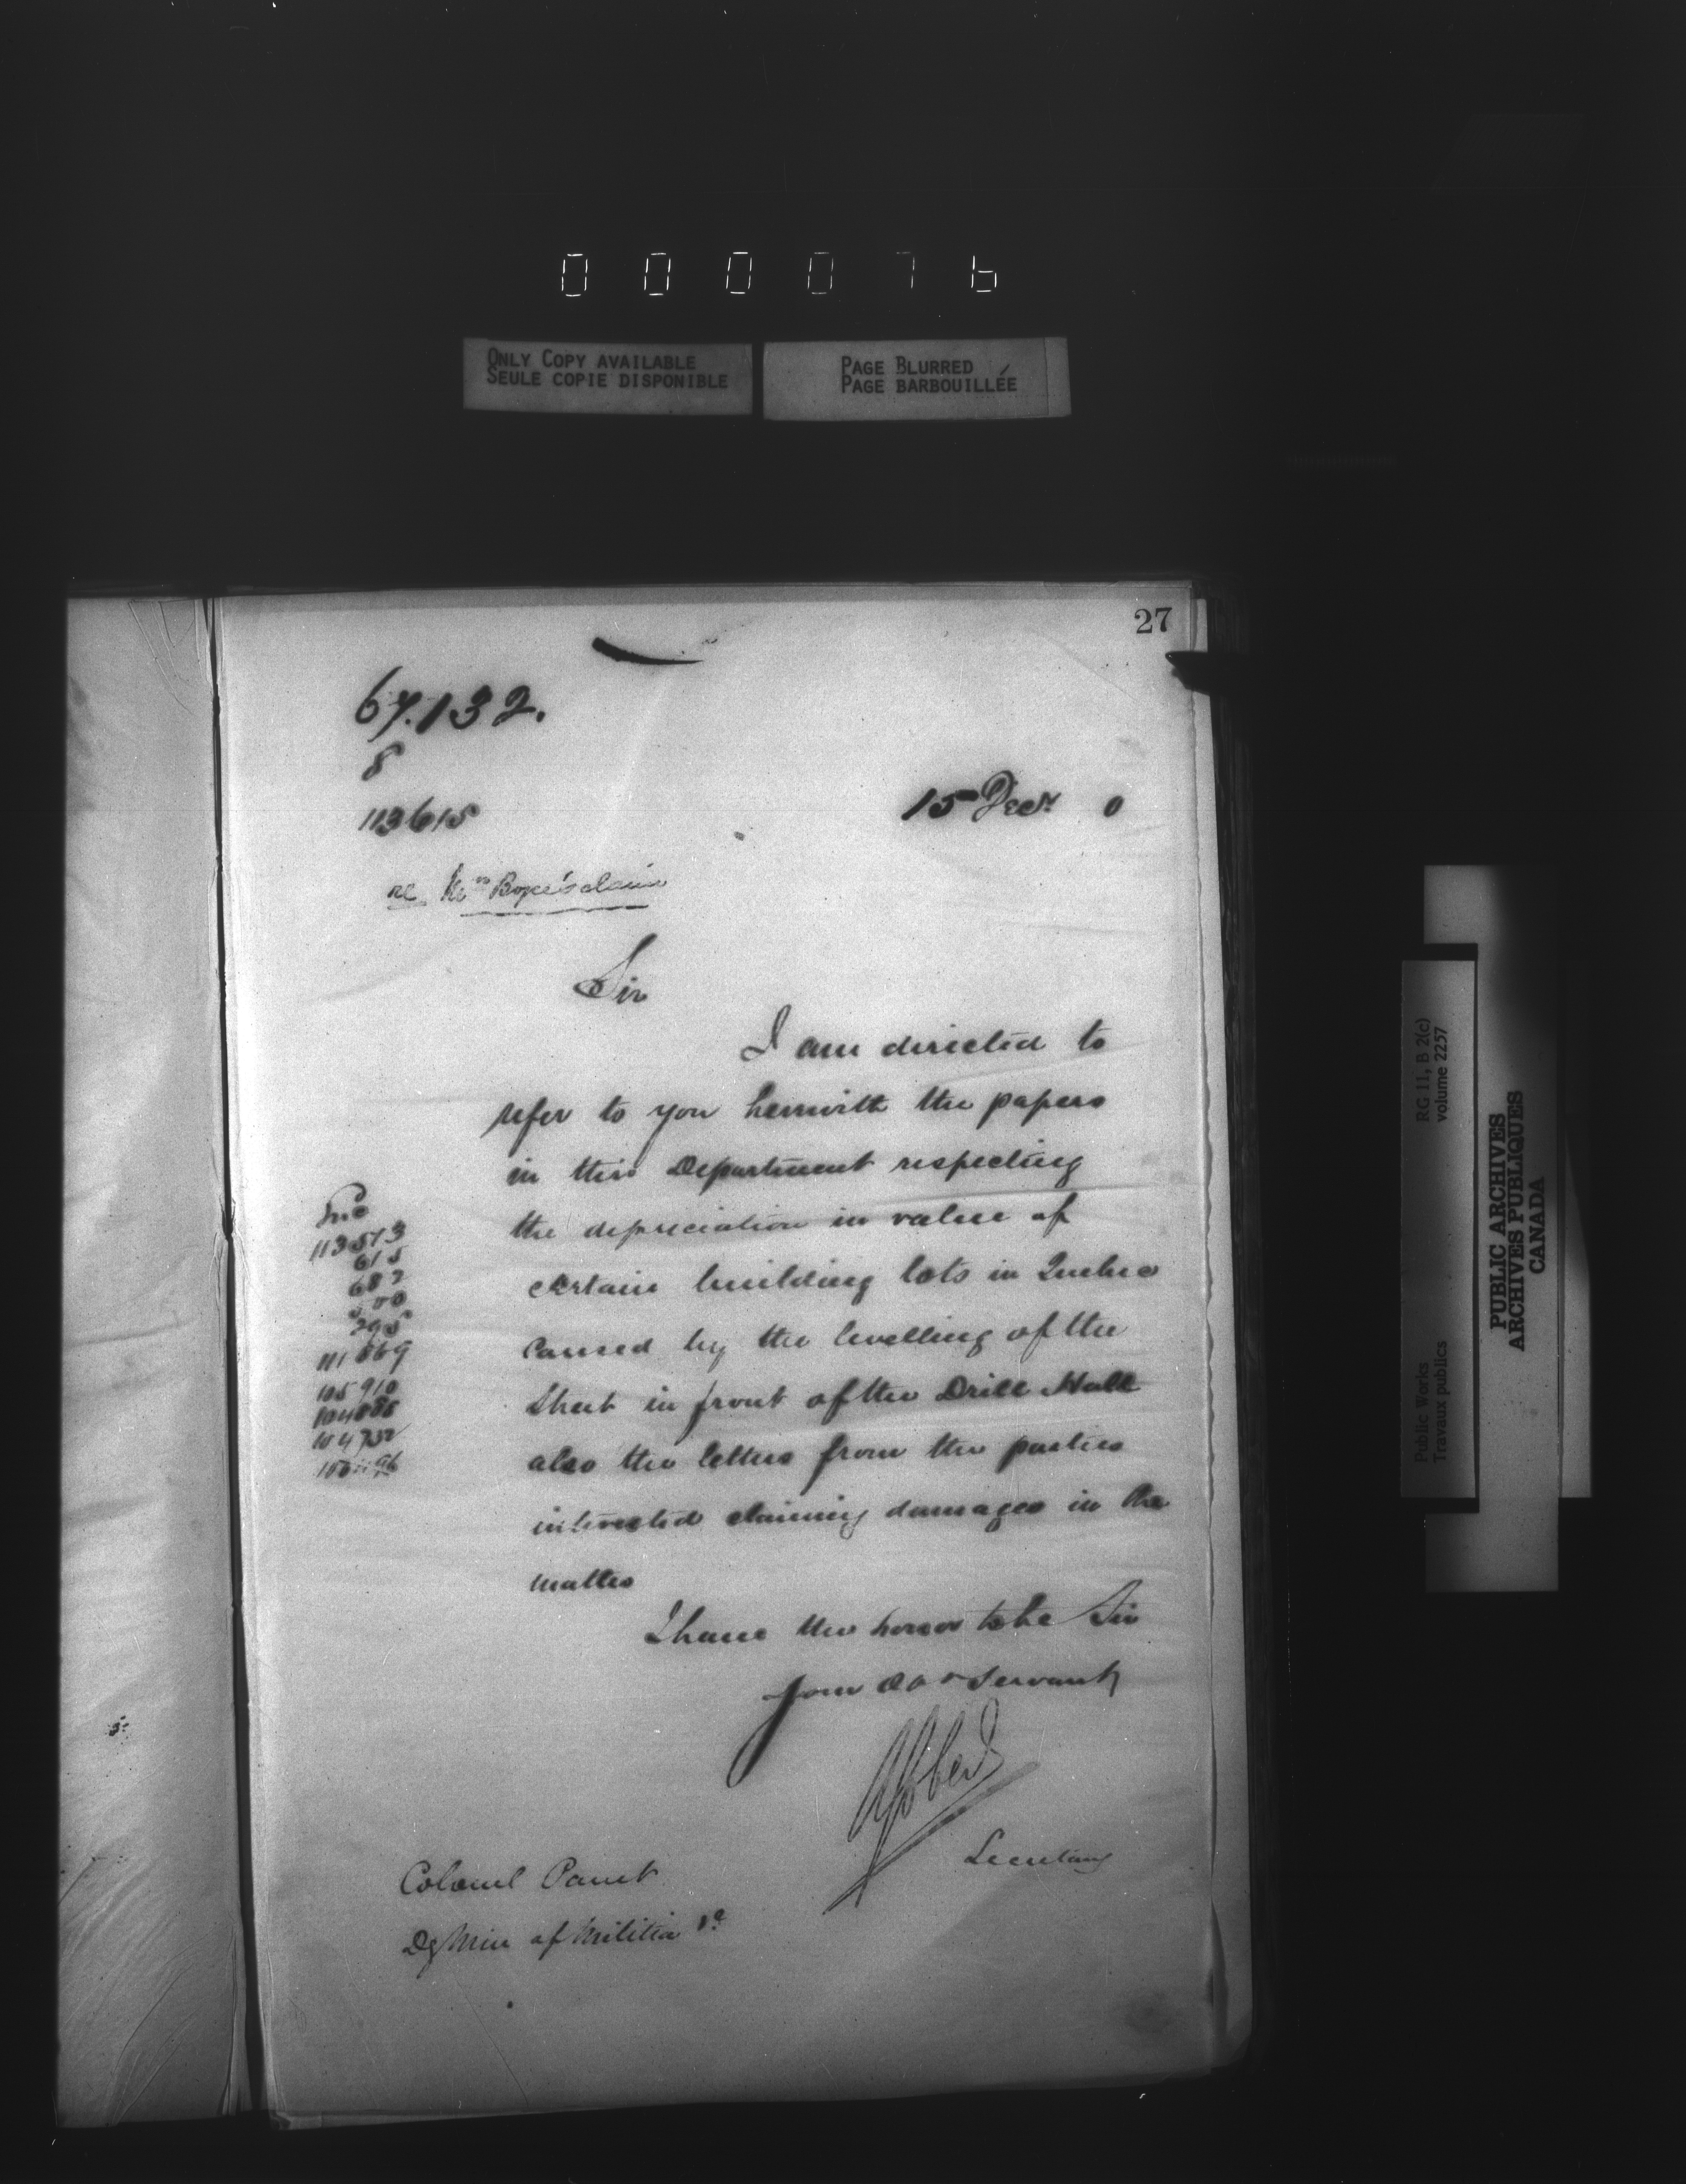 000076
ONLY COPY AVAILABLE
SEULE COPIE DISPONIBLE
PAGE BLURRED
PAGE BARBOUILLÉE
27
67.132.
8
113615
15 Decr 0
re Mrs claim
Sir
I am directed to
refer to you herewith the papers
in this Department respecting
the depreciation in value of
certain building lots in Quebec
caused by the levelling of the
Street in front of the Drill Hall
also the letters from the parties
interested claiming damages in the
matter
I have the honor to be Sir
Your Obt Servant
Secretary
Colonel Panet
Dy Min of Militia &c
Enc
113513
615
687
295
111669
105910
104888
104732
RG 11, B 2(c)
volume 2257
Public Works
Travaux publics
PUBLIC ARCHIVES
ARCHIVES PUBLIQUES
CANADA